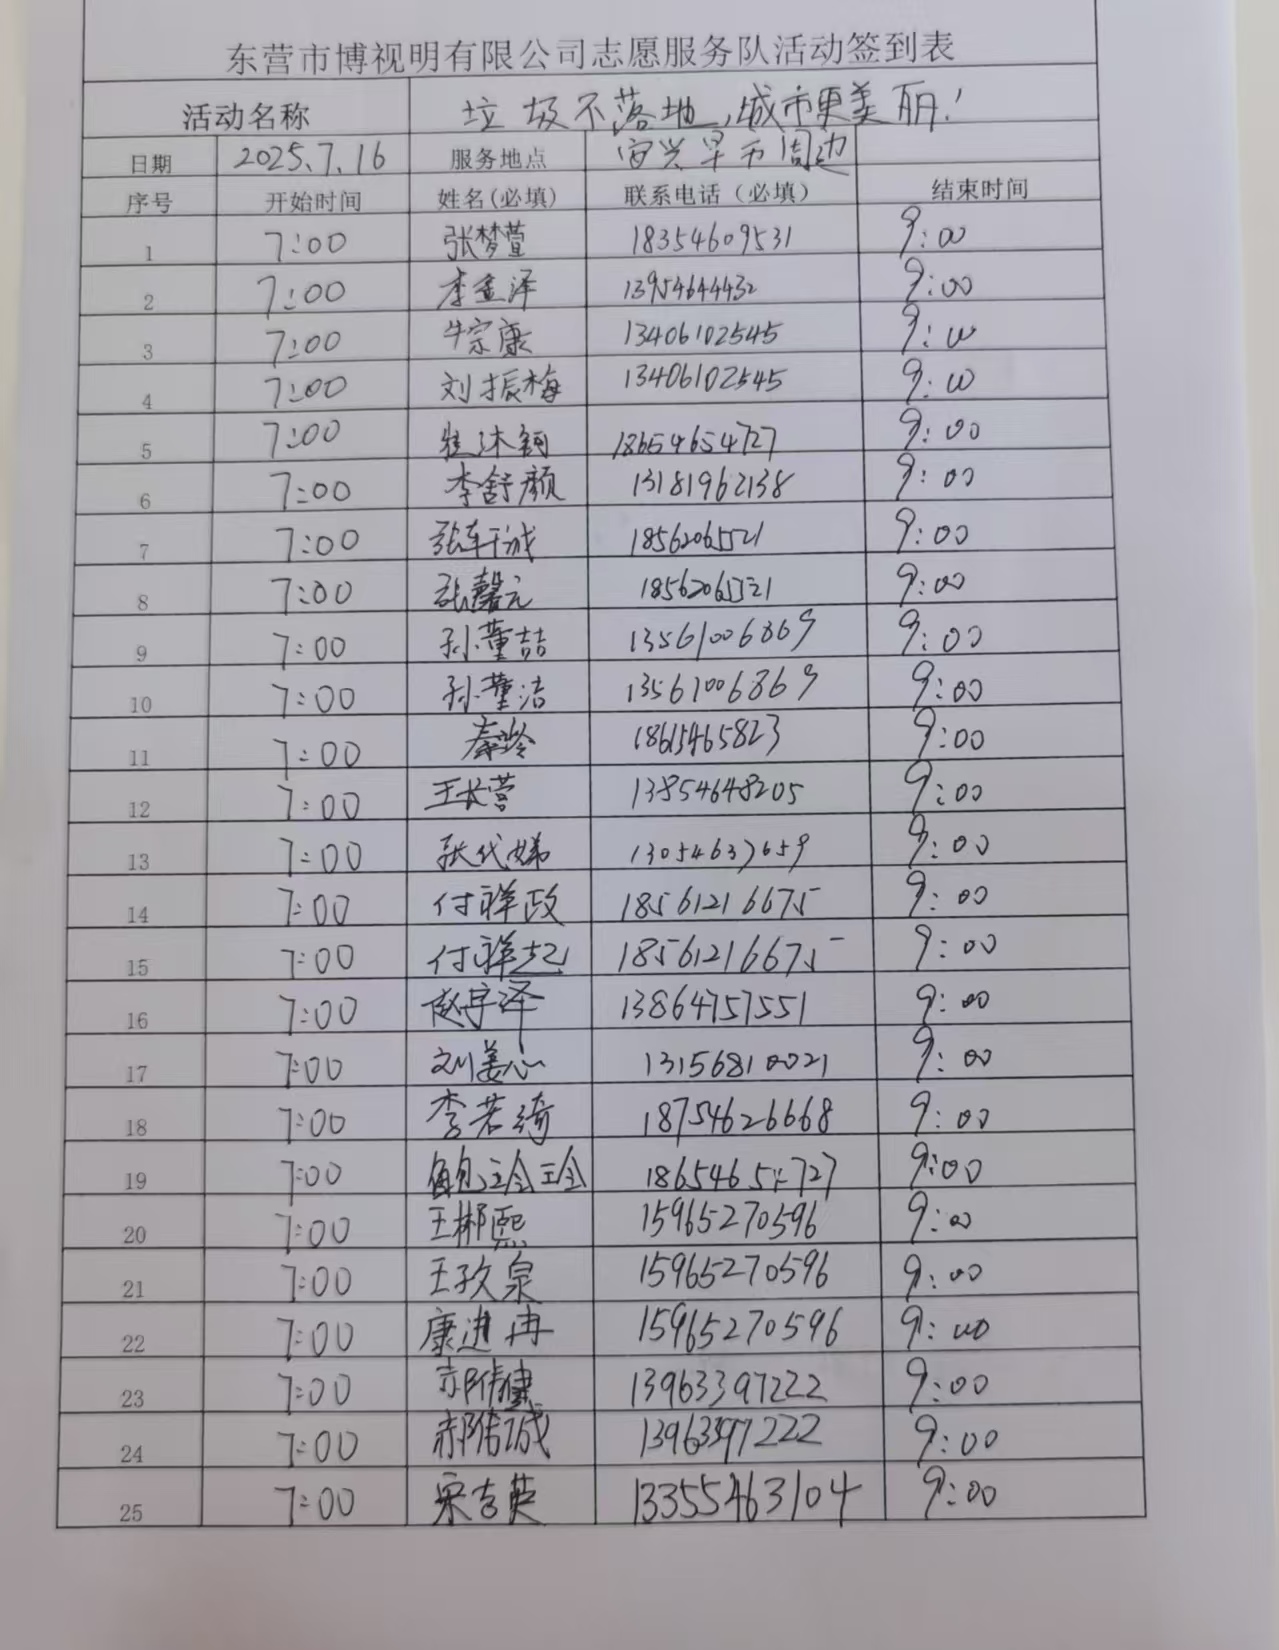 东营市博视明有限公司志愿服务队活动签到表
活动名称 垃圾不落地,城市更美丽!
日期 2025.7.16 服务地点 安兴早市周边
序号 开始时间 姓名(必填) 联系电话(必填) 结束时间
1 7:00 张梦萱 18354609531 9:00
2 7:00 李金泽 13954644432 9:00
3 7:00 牛宗康 13406102545 9:00
4 7:00 刘振梅 13406102545 9:00
5 7:00 18654654727 9:00
6 7:00 李舒颜 13181962138 9:00
7 7:00 张轩诚 18562065521 9:00
8 7:00 张馨元 18562065521 9:00
9 7:00 孙董喆 13561006869 9:00
10 7:00 孙董洁 13561006869 9:00
11 7:00 秦龄 18615465823 9:00
12 7:00 王长营 13854648205 9:00
13 7:00 张代娣 13054637659 9:00
14 7:00 付祥政 18561216675 9:00
15 7:00 付祥起 18561216675 9:00
16 7:00 赵宇泽 13864757551 9:00
17 7:00 刘姜心 13156810021 9:00
18 7:00 李若绮 18754626668 9:00
19 7:00 18654654727 9:00
20 7:00 王郴熙 15965270596 9:00
21 7:00 王孜泉 15965270596 9:00
22 7:00 康进冉 15965270596 9:00
23 7:00 13963397222 9:00
24 7:00 13963397222 9:00
25 7:00 宋吉英 13355463104 9:00